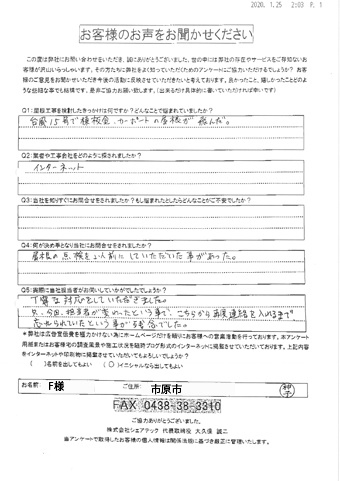 2020. 1.25 2:03 P. 1
お客様のお声をお聞かせください
この度は弊社にお問い合わせをいただき、誠にありがとうございました。世の中には弊社の存在やサービスをご存知ないお
客様が沢山いらっしゃいます。その方たちに弊社をよく知っていただくためのアンケートにご協力いただけるでしょうか?お
客様のご意見をお聞かせいただき今後の活動に反映させていただきたいと考えております。良かったこと、嬉しかったことどのよ
うな些細な事でも結構です。是非ご協力お願い致します。(出来るだけ具体的に書いていただければ幸いです)
Q1:屋根工事を検討したきっかけは何ですか?どんなことで悩まれていましたか?
台風15号で棟板金、カーポートの屋根が飛んだ。
Q2:業者や工事会社をどのように探されましたか?
インターネット
Q3:当社を知りすぐにお問合せをされましたか?もし悩まれたとしたらどんなことがご不安でしたか?
Q4:何が決め手となり当社にお問合せをされましたか?
屋根の点検を2人前にしていただいた事があった。
Q5:実際に当社担当者がお伺いしていかがでしたでしょうか?
丁寧な対応をしていただきました。
只、今回、担当者が変わったという事で、こちらから再度連絡を入れるまで
忘れられていたという事が残念でした。
*弊社は広告宣伝費を極力かけない為にホームページだけを頼りにお客様への営業活動を行っております。本アンケート
用紙またはお客様宅の調査風景や施工状況を随時ブログ形式のインターネットに掲載させていただいております。上記内容
をインターネットや印刷物に掲載させていただいてもよろしいでしょうか?
( )名前を出してもよい (○)イニシャルなら出してもよい
お名前: F様 ご住所: 市原市
FAX 0438-38-3310
ご協力ありがとうございました。
株式会社シェアテック 代表取締役 大久保 誠二
当アンケートで取得したお客様の個人情報は関係法規に基づき厳正に管理いたします。